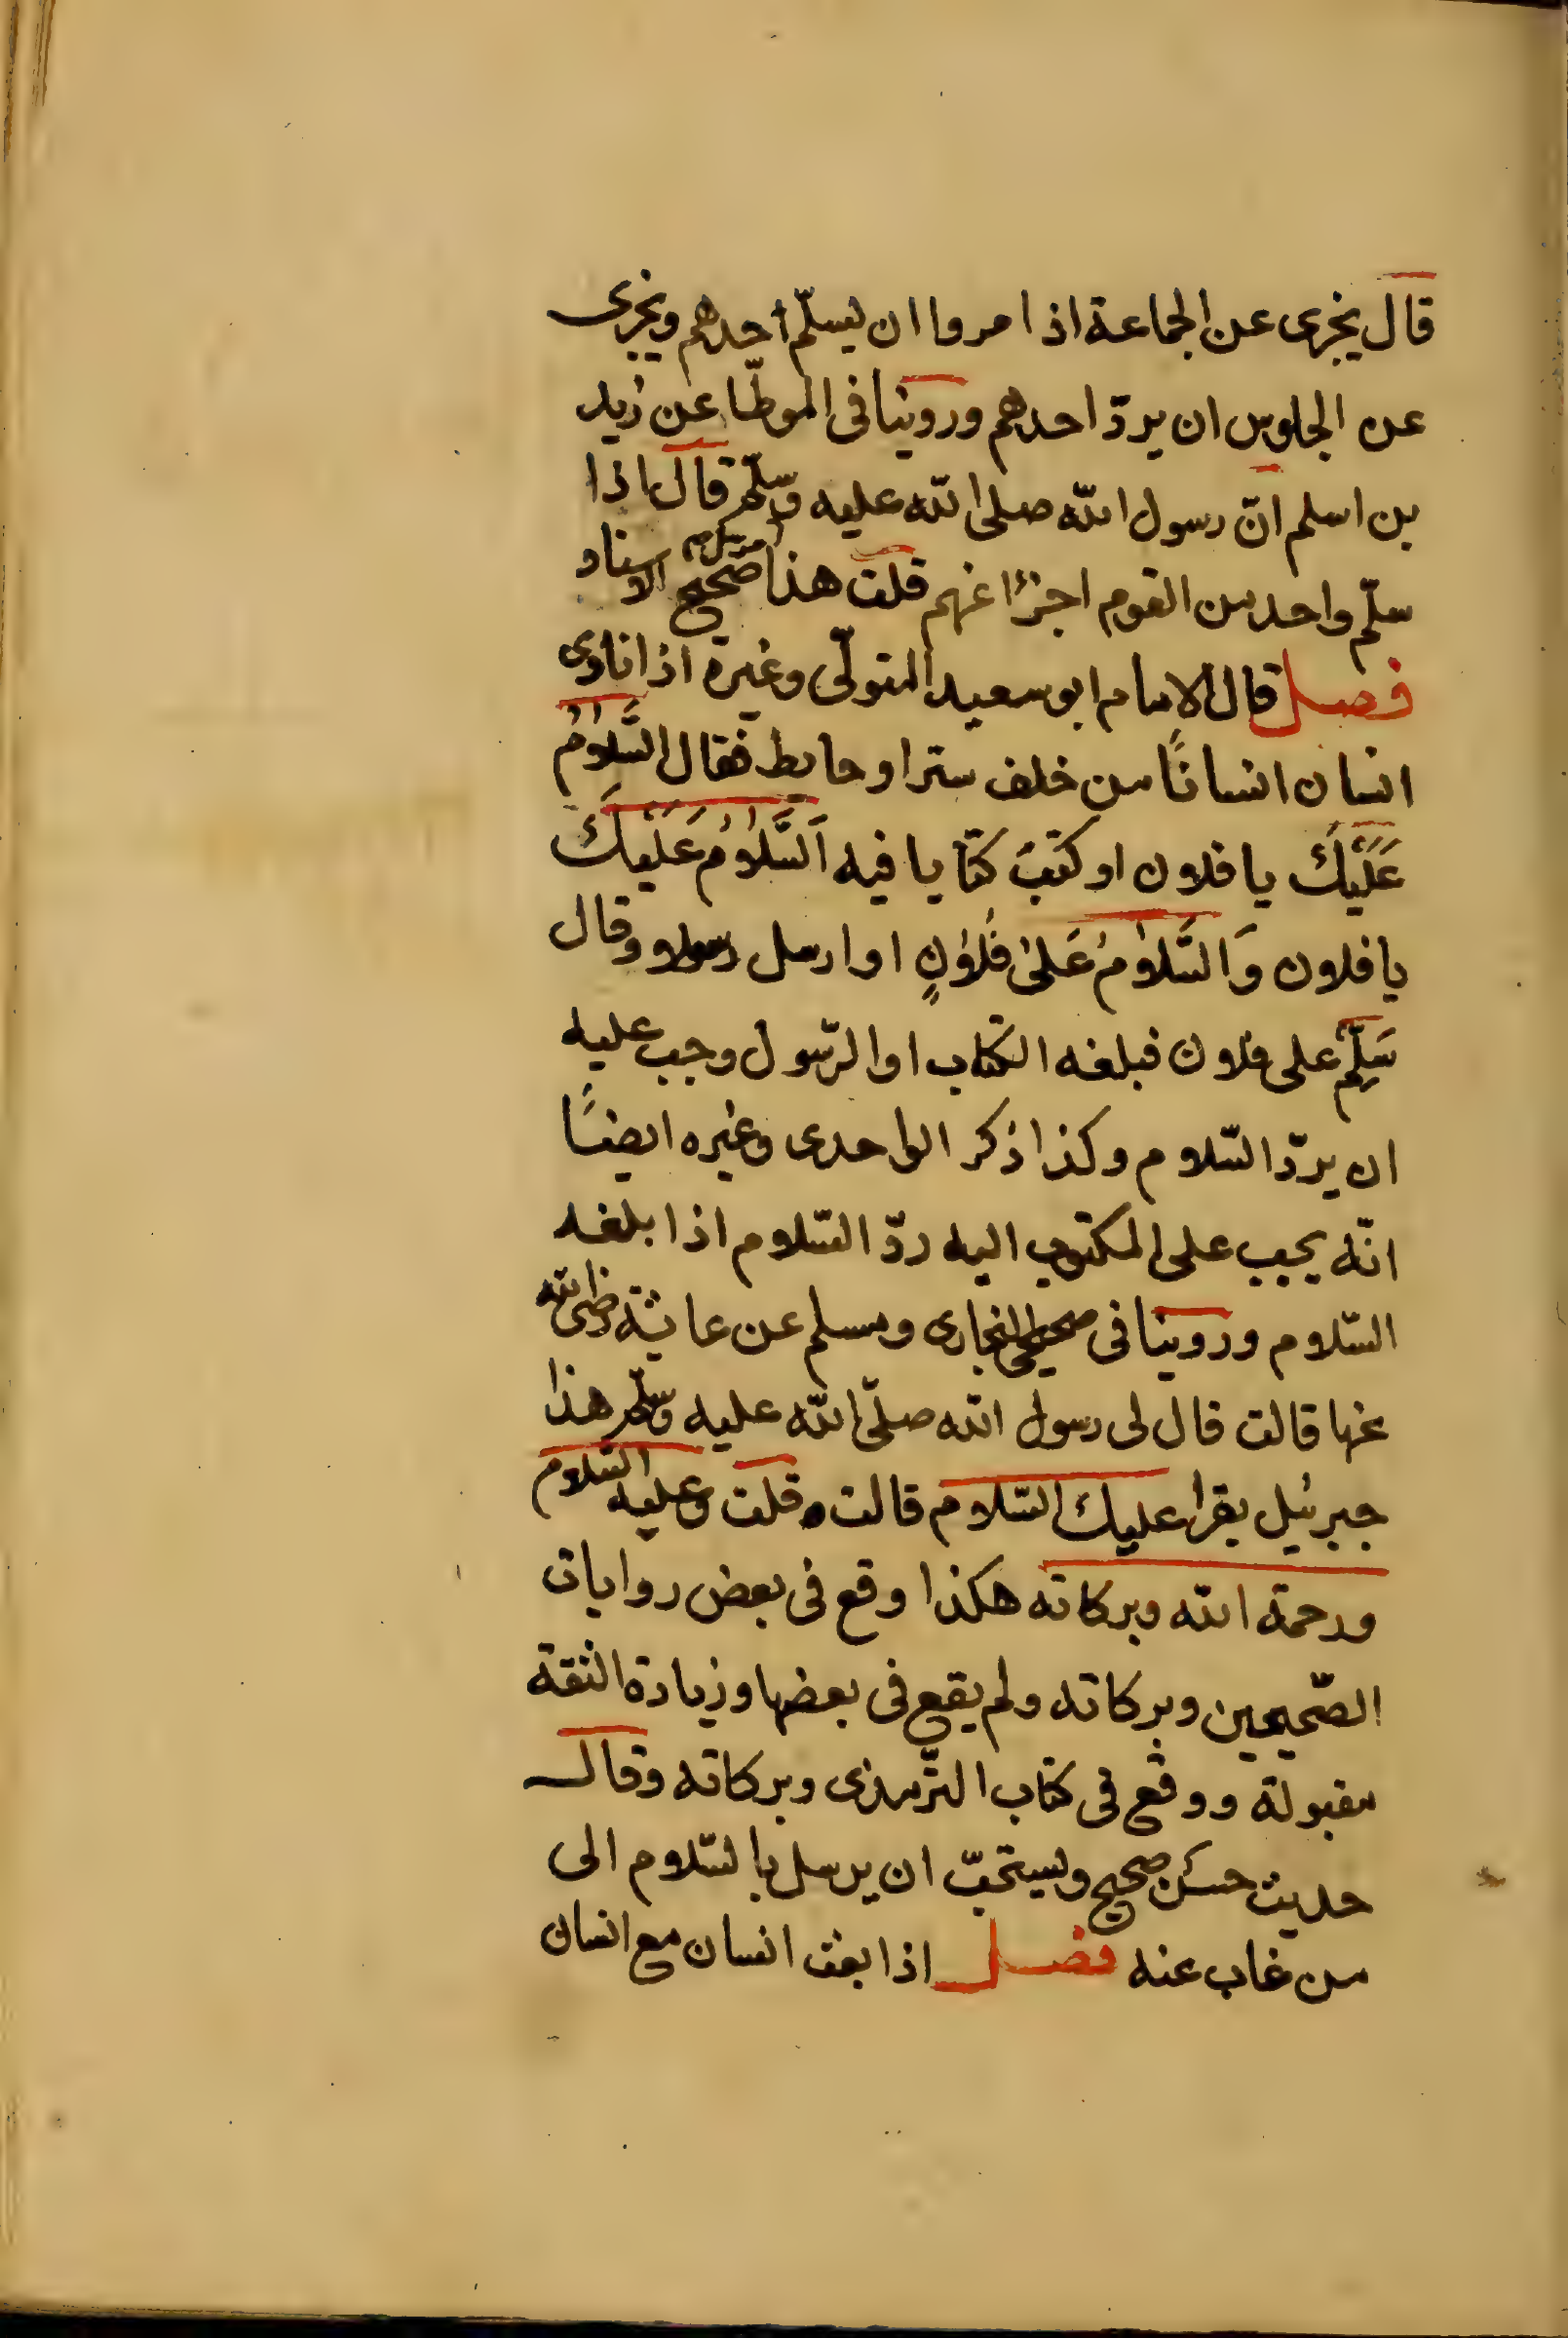 قال يجزى عن الجماعة اذا مروا ان يسلّم احدهم ويجزى
عن الجلوس ان يردّ احدهم وروينا فى الموطّا عن زيد
بن اسلم انّ رسول الله صلى الله عليه وسلّم قال اذا
سلّم واحد من القوم اجزٔا عنهم قلت هذا مرسل صحيح الاسناد
فصل قال الامام ابو سعيد المتولّى وغيره اذا نادى
انسان انسانًا من خلف ستر او حايط فقال السَّلَامُ
عَلَيْكَ يا فلان او كتب كتابا فيه اَلسَّلَامُ عَلَيْكَ
يا فلان وَالسَّلَامُ عَلىٰ فُلَانٍ او ارسل رسولا وقال
سَلِّمْ على فلان فبلغه الكتاب او الرّسول وجب عليه
ان يردّ السّلام وكذا ذكر الواحدى وغيره ايضًا
انّه يجب على المكتوب اليه ردّ السّلام اذا بلغه
السّلام وروينا فى صحيحى البخارى ومسلم عن عائشة رضى الله
عنها قالت قال لى رسول الله صلّى الله عليه وسلّم هذا
جبرئيل يقرا عليك السّلام قالت قلت وعليه السّلام
ورحمة الله وبركاته هكذا وقع فى بعض روايات
الصّحيحين وبركاته ولم يقع فى بعضها وزيادة الثقة
مقبولة ووقع فى كتاب الترّمذى وبركاته وقال
حديث حسن صحيح ويستحبّ ان يرسل بالسّلام الى
من غاب عنه فصل اذا بعث انسان مع انسان